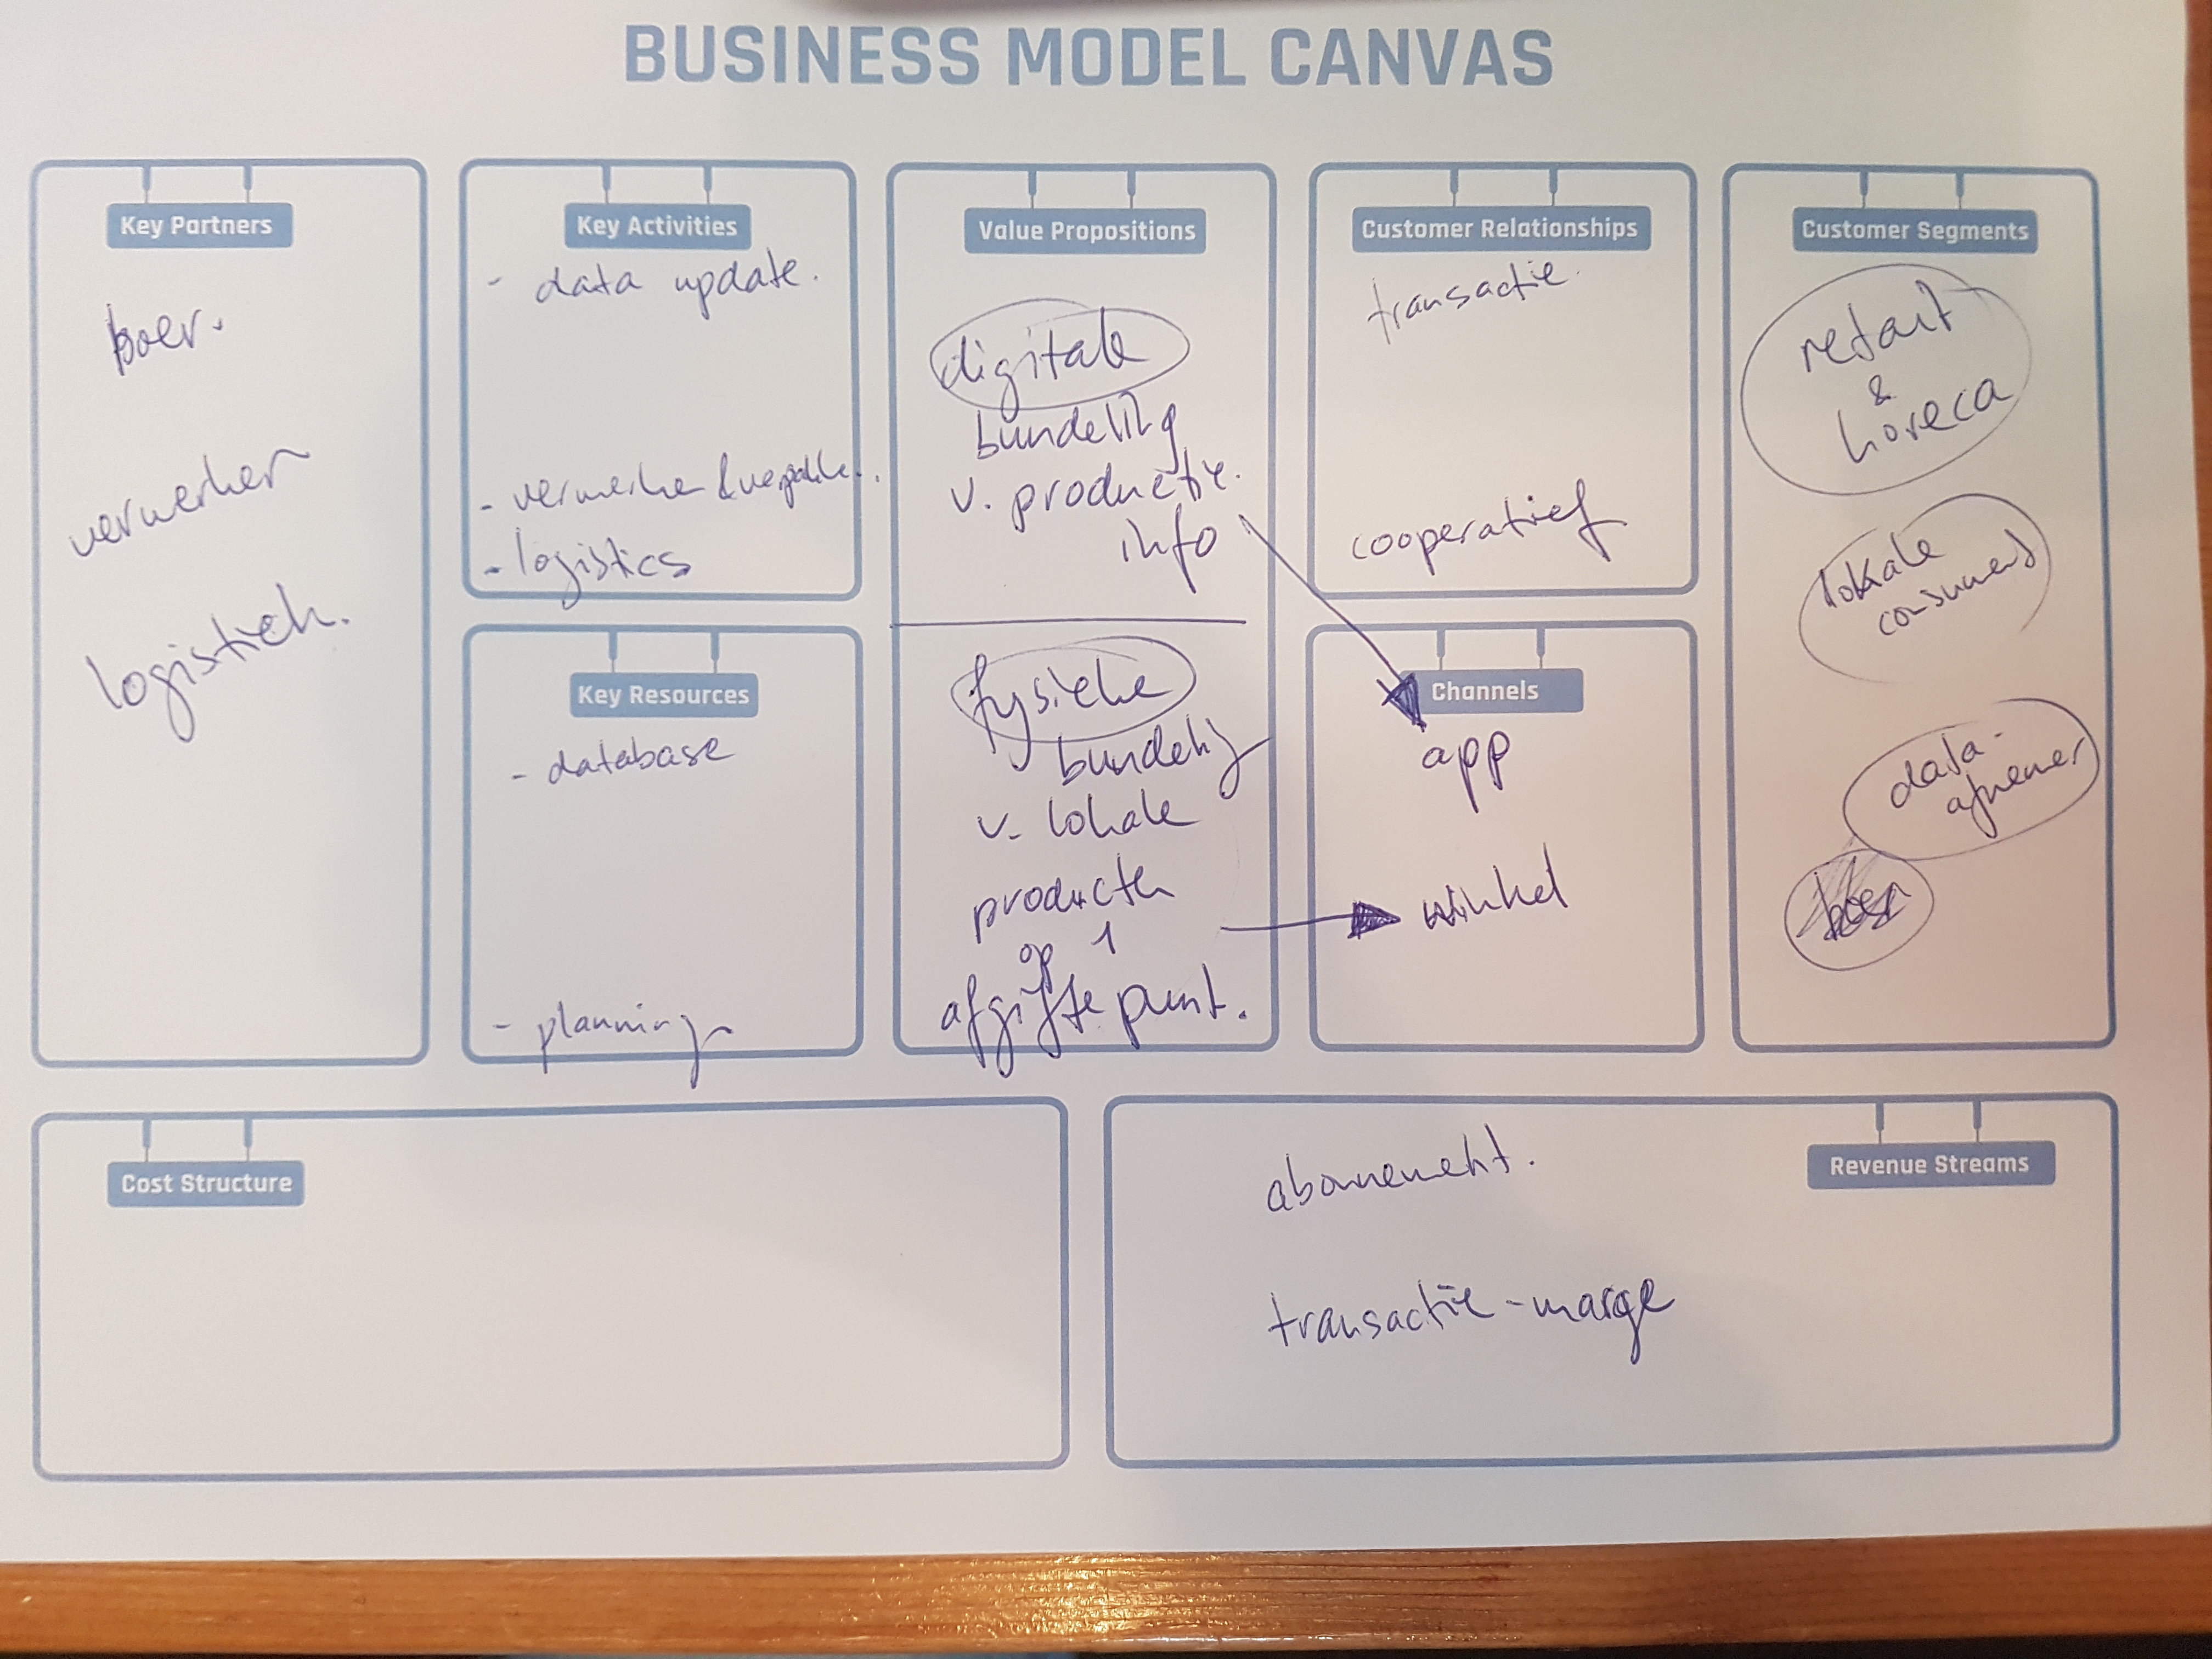 BUSINESS MODEL CANVAS
Key Partners
boer.
verwerker
logistiek.
Key Activities
- data update.
- verwerken & verpakken.
- logistics
Key Resources
- database
- planning
Value Propositions
digitale
bundeling
v. productie.
info
fysieke
bundeling
v. lokale
producten
op 1
afgifte punt.
Customer Relationships
transactie
cooperatief
Channels
app
winkel
Customer Segments
retail
&
horeca
lokale
consument
data-
afnemer
boer
Cost Structure
Revenue Streams
abonnement.
transactie - marge